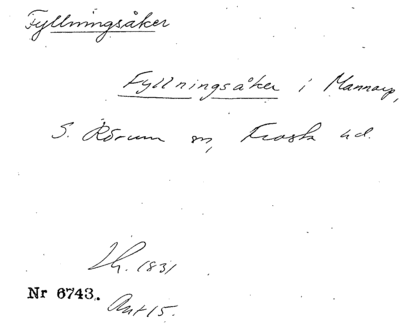 Fyllningsåker
Fyllningsåker i Mannarp,
S. Rörum sn, Frosta hd.
Lh. 1831
Nr 6743.
Ant 15.